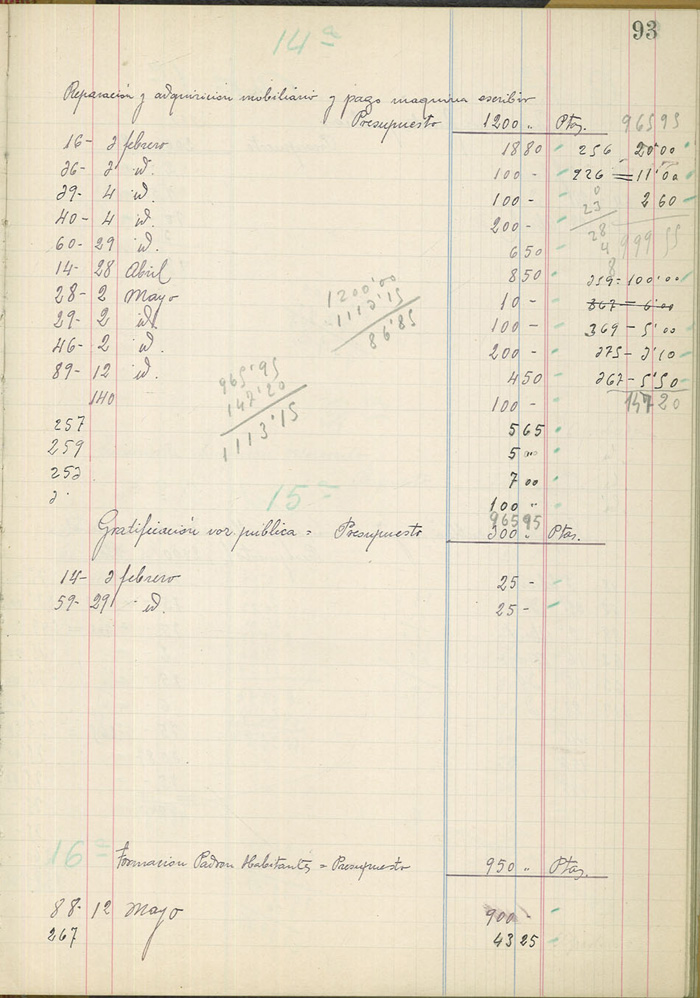 14ª 93
Reparación y adquisición mobiliario y pago maquina escribir
Presupuesto 1200 " Ptas. 965 95
16- 2 febrero 18 80 256 20'00
26- 2 id. 100 - 226 = 11'00
29- 4 id. 100 - 2 60
40- 4 id. 200 -
60- 29 id. 6 50 999 55
14- 28 Abril 8 50 259- 100'00
28- 2 Mayo 10 - 367 - 6'00
29- 2 id. 100 - 369 - 5'00
46- 2 id. 200 - 275 - 3'10
89- 12 id. 4 50 267 - 5'50
140 100 - 147 20
257 5 65
259 5 00
253 7 00
2" 100 "
965 95
1200'00
1113'15
86'85
965'95
147'20
1113'15
15ª
Gratificación voz publica = Presupuesto 300 " Ptas.
14- 2 febrero 25 -
59- 29 id. 25 -
16ª
Formacion Padron Habitantes = Presupuesto 950 " Ptas.
88- 12 Mayo 900 -
267 43 25